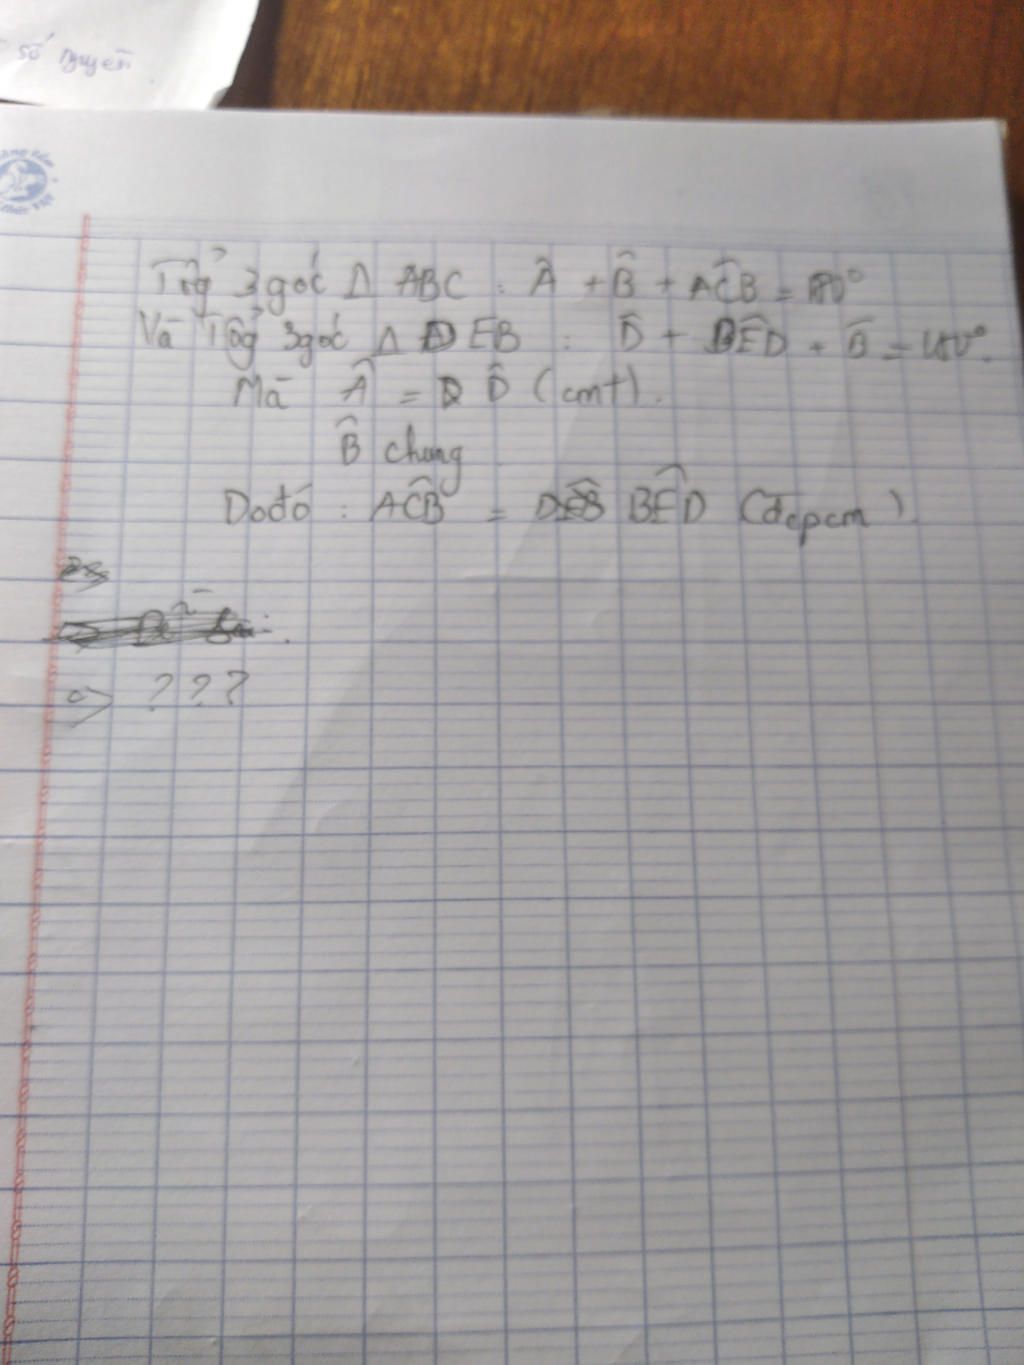 số nguyên
Tổng 3 góc Δ ABC : Â + B̂ + AĈB = 180°
Và Tổng 3 góc Δ DEB : D̂ + BÊD + B̂ = 180°.
Mà Â = D̂ (cmt).
B̂ chung
Do đó : AĈB = BÊD (đcpcm).
c> ???